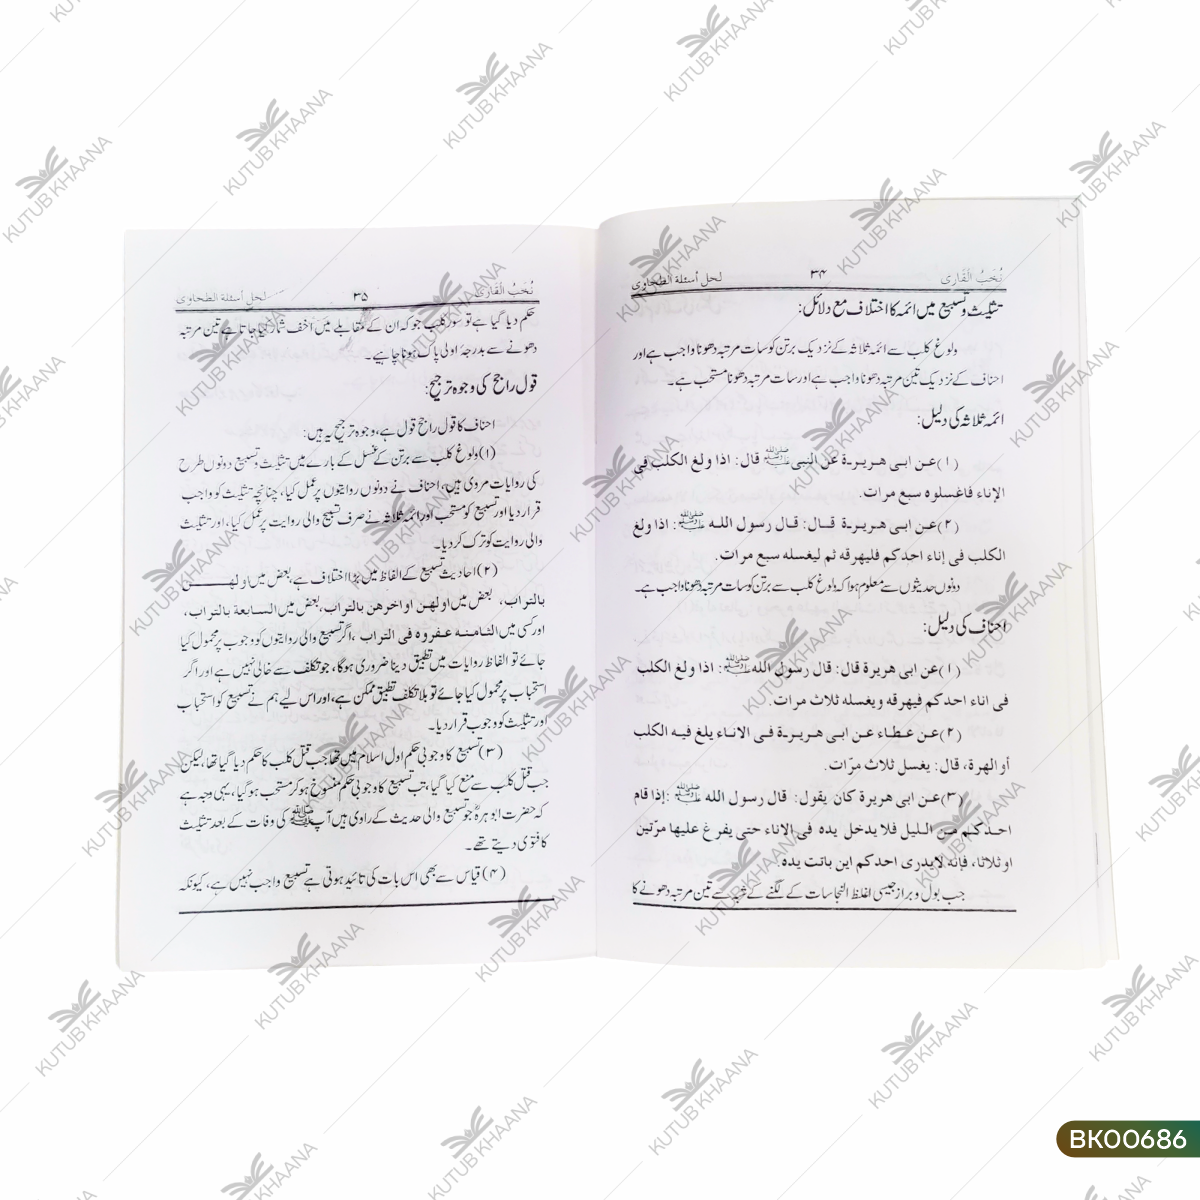 نُخَبُ الْقَارِی ۳۴ لحل أسئلة الطحاوی
تثلیث و تسبیع میں ائمہ کا اختلاف مع دلائل:
ولوغِ کلب سے ائمہ ثلاثہ کے نزدیک برتن کو سات مرتبہ دھونا واجب ہے اور
احناف کے نزدیک تین مرتبہ دھونا واجب ہے اور سات مرتبہ دھونا مستحب ہے۔
ائمہ ثلاثہ کی دلیل:
(۱) عن ابی هریرة عن النبی ﷺ قال: اذا ولغ الکلب فی
الإناء فاغسلوه سبع مرات.
(۲) عن ابی هریرة قال: قال رسول الله ﷺ: اذا ولغ
الکلب فی إناء احدکم فلیهرقه ثم لیغسله سبع مرات.
دونوں حدیثوں سے معلوم ہوا کہ ولوغ کلب سے برتن کو سات مرتبہ دھونا واجب ہے۔
احناف کی دلیل:
(۱) عن ابی هریرة قال: قال رسول الله ﷺ: اذا ولغ الکلب
فی اناء احدکم فیهرقه ویغسله ثلاث مرات.
(۲) عن عطاء عن ابی هریرة فی الاناء یلغ فیه الکلب
أو الهرة، قال: یغسل ثلاث مرّات.
(۳) عن ابی هریرة کان یقول: قال رسول الله ﷺ: إذا قام
احدکم من اللیل فلا یدخل یده فی الإناء حتی یفرغ علیها مرّتین
او ثلاثا، فإنه لایدری احدکم این باتت یده.
جب بول و براز جیسی اغلظ النجاسات کے لگنے کے شبہ سے تین مرتبہ دھونے کا
نُخَبُ الْقَارِی ۳۵ لحل أسئلة الطحاوی
حکم دیا گیا ہے تو سور کلب جو کہ ان کے مقابلے میں اخف شمار کیا جاتا ہے تین مرتبہ
دھونے سے بدرجۂ اولی پاک ہونا چاہیے۔
قول راجح کی وجوہ ترجیح:
احناف کا قول راجح قول ہے، وجوہ ترجیح یہ ہیں:
(۱) ولوغ کلب سے برتن کے غسل کے بارے میں تثلیث و تسبیع دونوں طرح
کی روایات مروی ہیں، احناف نے دونوں روایتوں پر عمل کیا، چنانچہ تثلیث کو واجب
قرار دیا اور تسبیع کو مستحب اور ائمہ ثلاثہ نے صرف تسبیع والی روایت پر عمل کیا، اور تثلیث
والی روایت کو ترک کر دیا۔
(۲) احادیث تسبیع کے الفاظ میں بڑا اختلاف ہے بعض میں اولهن
بالتراب، بعض میں اولهن او اخرهن بالتراب، بعض میں السابعة بالتراب،
اور کسی میں الثامنه عفروه فی التراب، اگر تسبیع والی روایتوں کو وجوب پر محمول کیا
جائے تو الفاظ روایات میں تطبیق دینا ضروری ہوگا، جو تکلف سے خالی نہیں ہے اور اگر
استحباب پر محمول کیا جائے تو بلا تکلف تطبیق ممکن ہے، اور اس لیے ہم نے تسبیع کو استحباب
اور تثلیث کو وجوب قرار دیا۔
(۳) تسبیع کا وجوبی حکم اول اسلام میں تھا جب قتل کلب کا حکم دیا گیا تھا، لیکن
جب قتل کلب سے منع کیا گیا، تب تسبیع کا وجوبی حکم منسوخ ہو کر مستحب ہو گیا، یہی وجہ ہے
کہ حضرت ابو ہریرہؓ جو تسبیع والی حدیث کے راوی ہیں آپ ﷺ کی وفات کے بعد تثلیث
کا فتوی دیتے تھے۔
(۴) قیاس سے بھی اس بات کی تائید ہوتی ہے تسبیع واجب نہیں ہے، کیونکہ
KUTUB KHAANA
BK00686